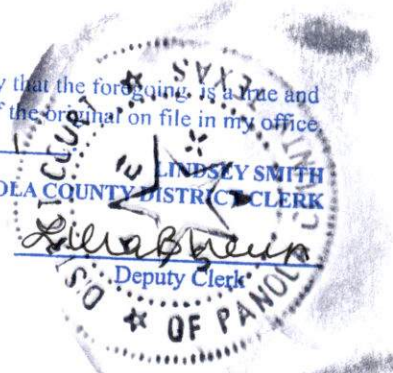 y that the foregoing is a true and
f the original on file in my office
LINDSEY SMITH
OLA COUNTY DISTRICT CLERK
Deputy Clerk
DISTRICT COURT
OF PANOLA
TEXAS